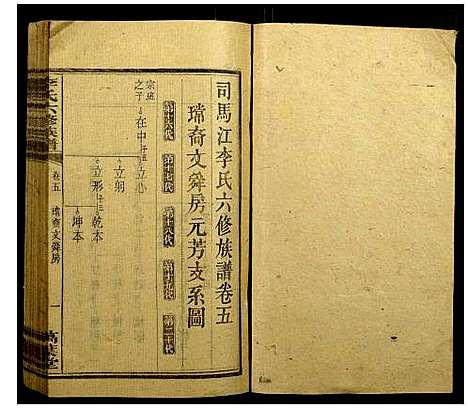 司馬江李氏六修族譜卷五
瑞裔文舜房元芳支系圖
第十六代 第十七代 第十八代 第十九代 第二十代
宗班之子
在中 子三 立心
立躬
立形 子二 乾本
坤本
李氏六修族譜
卷五
瑞裔文舜房
一